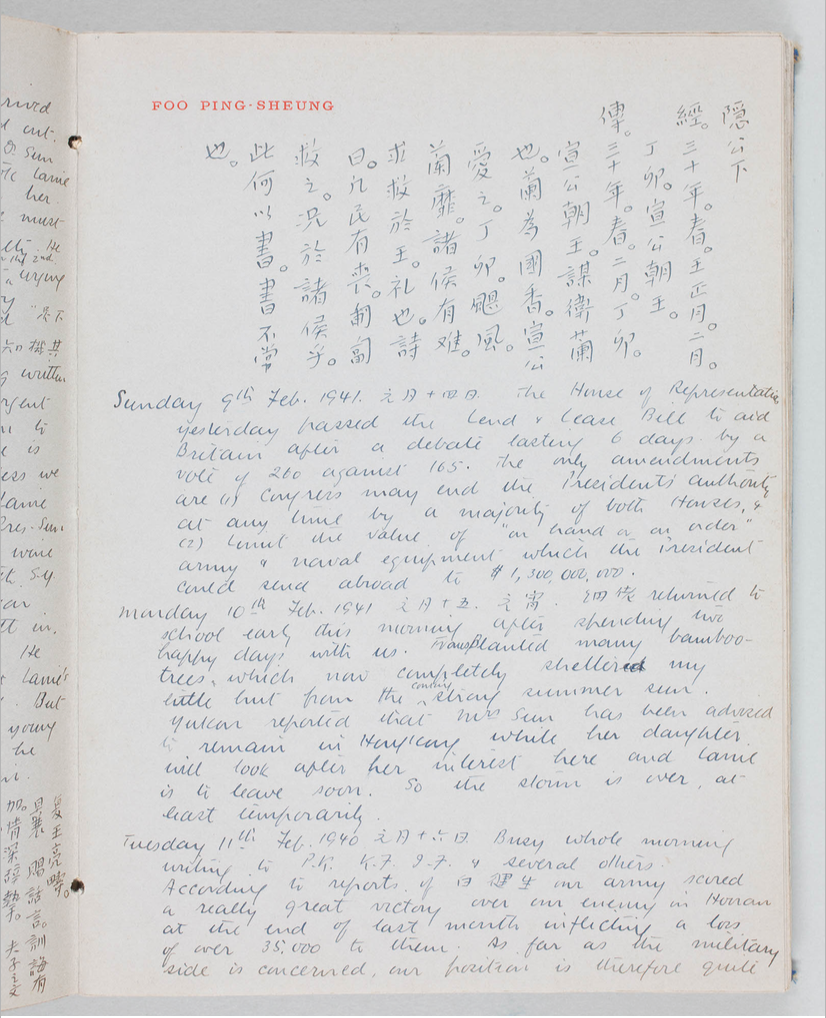 FOO PING-SHEUNG
隱公下
經。三十年。春。王正月。二月。
丁卯。宣公朝王。
傳。三十年。春。二月。丁卯。
宣公朝王。謀衛蘭
也。蘭為國香。宣公
愛之。丁卯。颶風。
蘭靡。諸侯有难。
求救於王。礼也。詩
曰。凡民有喪。匍匐
救之。况於諸侯乎。
此何以書。書不常
也。
Sunday 9th Feb. 1941. 元月十四日. The House of Representatives
yesterday passed the Lend & Lease Bill to aid
Britain after a debate lasting 6 days by a
vote of 260 against 165. The only amendments
are (1) Congress may end the President's authority
at any time by a majority of both Houses, &
(2) Limit the value of "on hand or on order"
army & naval equipment which the President
could send abroad to $1,300,000,000.
Monday 10th Feb. 1941 元月十五. 元宵. returned to
school early this morning after spending two
happy days with us. Transplanted many bamboo-
trees, which now completely sheltered my
little hut from the coming strong summer sun.
Yukon reported that Mrs Sun has been advised
to remain in Hongkong while her daughter
will look after her interest here and Lamie
is to leave soon. So the storm is over, at
least temporarily.
Tuesday 11th Feb. 1940 元月十六日. Busy whole morning
writing to P.K. K.F. & several others.
According to reports of 白健生 our army scored
a really great victory over our enemy in Honan
at the end of last month inflicting a loss
of over 35,000 to them. As far as the military
side is concerned, our position is therefore quite